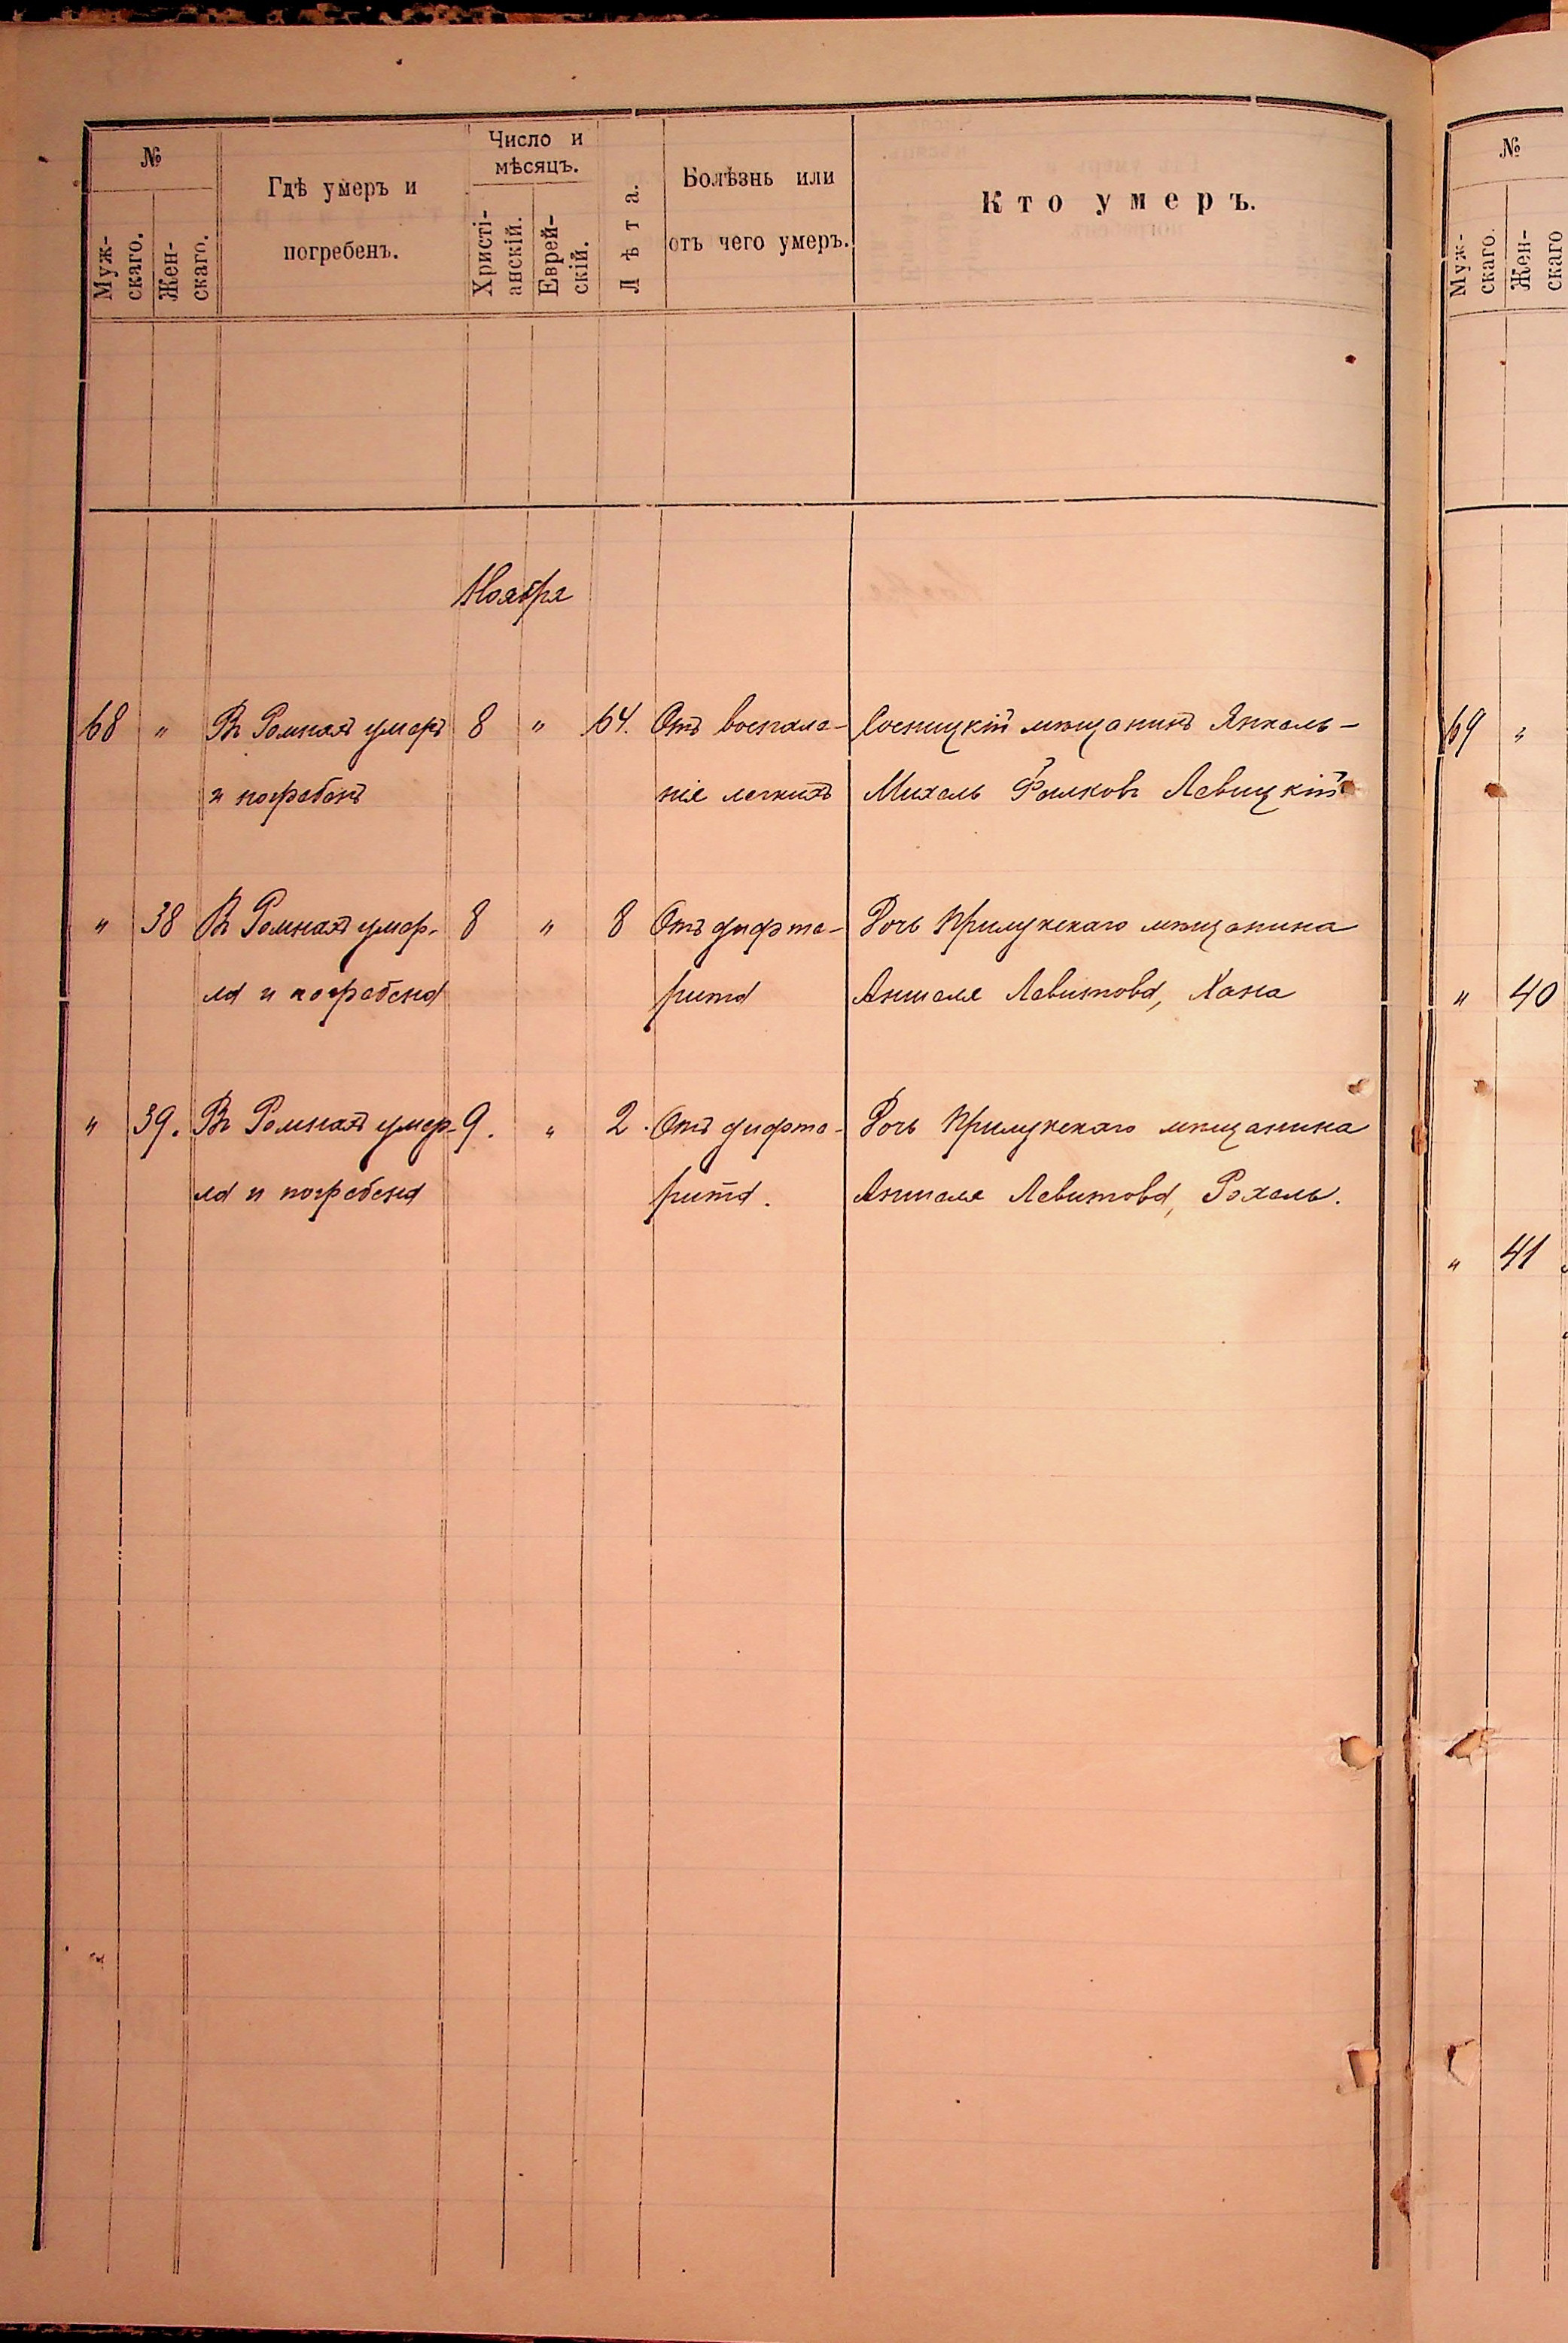 №
Муж-
скаго.
Жен-
скаго.
Гдѣ умеръ и
погребенъ.
Число и
мѣсяцъ.
Христі-
анскій.
Еврей-
скій.
Лѣта.
Болѣзнь или
отъ чего умеръ.
Кто умеръ.
Ноября
68 " Въ Ромнахъ умеръ 8 " 64. Отъ воспале- Сосницкій мѣщанинъ Янкель-
и погребенъ ніе легкихъ Михель Левицкій
" 38 Въ Ромнахъ умер- 8 " 8 Отъ дифте- Дочь Прилукскаго мѣщанина
ла и погребена рита Аншеля Левитова, Хана
" 39. Въ Ромнахъ умер- 9. " 2. Отъ дифте- Дочь Прилукскаго мѣщанина
ла и погребена рита. Аншеля Левитова, Рохель.
№
Муж-
скаго.
Жен-
скаго
69 "
" 40
" 41